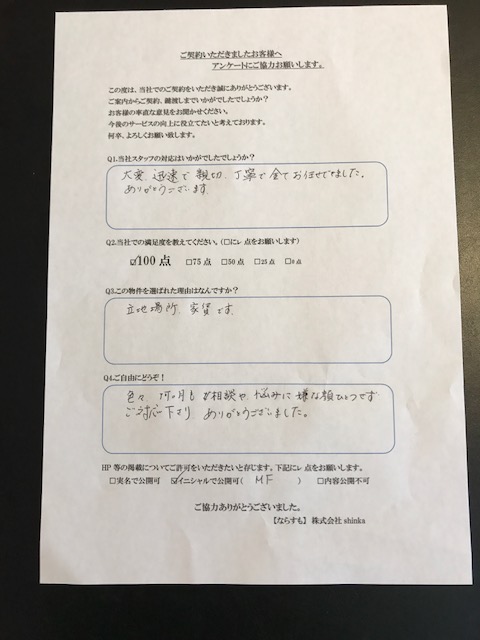 ご契約いただきましたお客様へ
アンケートにご協力お願いします。
この度は、当社でのご契約をいただき誠にありがとうございます。
ご案内からご契約、鍵渡しまでいかがでしたでしょうか？
お客様の率直な意見をお聞かせください。
今後のサービスの向上に役立てたいと考えております。
何卒、よろしくお願い致します。
Q1.当社スタッフの対応はいかがでしたでしょうか？
大変、迅速で親切、丁寧で全てお任せできました。
ありがとうございます。
Q2.当社での満足度を教えてください。（□にレ点をお願いします）
☑100点 □75点 □50点 □25点 □0点
Q3.この物件を選ばれた理由はなんですか？
立地場所、家賃です。
Q4.ご自由にどうぞ！
色々、何ヶ月もご相談や、悩みに嫌な顔ひとつせず
ご対応下さり、ありがとうございました。
HP等の掲載についてご許可をいただきたいと存じます。下記にレ点をお願いします。
□実名で公開可 ☑イニシャルで公開可（ MF ） □内容公開不可
ご協力ありがとうございました。
【ならすも】株式会社shinka